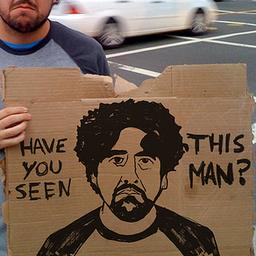 HAVE
YOU
SEEN
THIS
MAN?